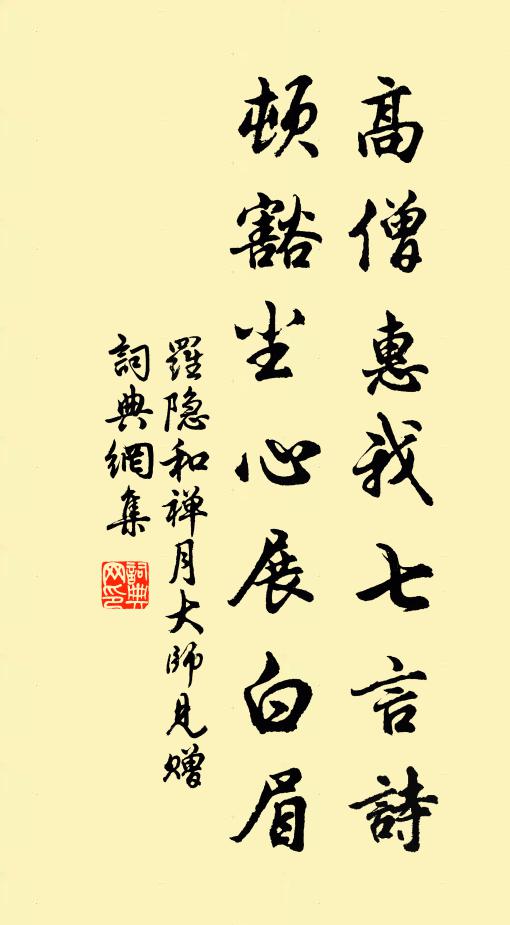 高僧惠我七言詩
頓豁尘心展白眉
羅隐和禅月大師見赠
詞典網集
詞典网印